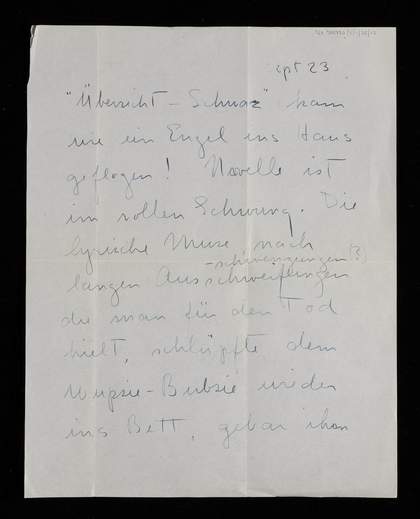 Spt 23
"Übersicht – Schnaz" kam
wie ein Engel ins Haus
geflogen! Novelle ist
im vollen Schwung. Die
lyrische Muse nach
-schwingungen (?)
langen Ausschweifungen
die man für den Tod
hielt, schlüpfte dem
Wupsie-Bubsie wieder
ins Bett, gebar ihm